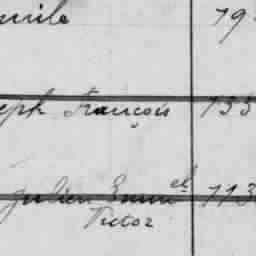 mile 79
eph François 133
Julien Emm^el 113
Victor